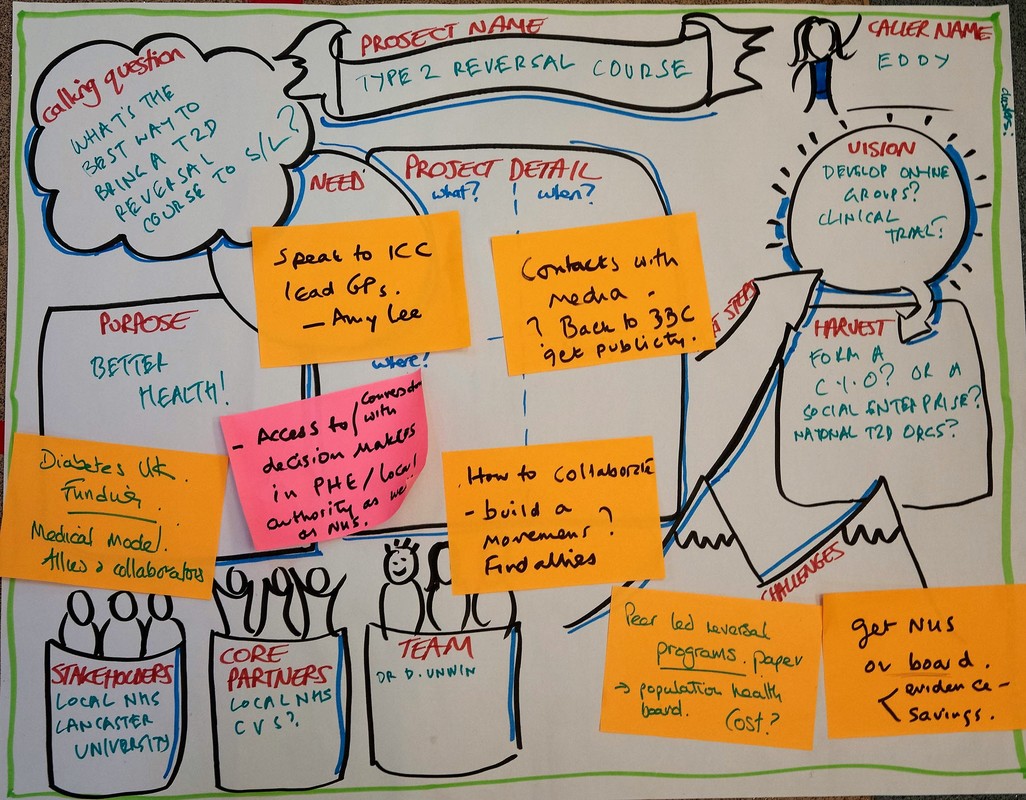 PROJECT NAME
TYPE 2 REVERSAL COURSE
CALLER NAME
EDDY
calling question
WHAT'S THE
BEST WAY TO
BRING A T2D
REVERSAL
COURSE TO S/L?
NEED
PROJECT DETAIL
what?
when?
where?
VISION
DEVELOP ONLINE
GROUPS?
CLINICAL
TRIAL?
Speak to ICC
lead GPs.
- Amy Lee
Contacts with
media -
? Back to BBC
get publicity.
STEPS
PURPOSE
BETTER
HEALTH!
HARVEST
FORM A
C.I.O? OR A
SOCIAL ENTERPRISE?
NATIONAL T2D ORGS?
- Access to/conversation with
decision makers
in PHE/local
authority as well
as NHS.
Diabetes UK.
Funding
Medical Model.
Allies & collaborators
How to collaborate
- build a
movement?
Find allies
CHALLENGES
Peer led reversal
programs. paper
→ population health
board. Cost?
get NHS
on board.
evidence -
savings.
STAKEHOLDERS
LOCAL NHS
LANCASTER
UNIVERSITY
CORE
PARTNERS
LOCAL NHS
CVS?
TEAM
DR D. UNWIN